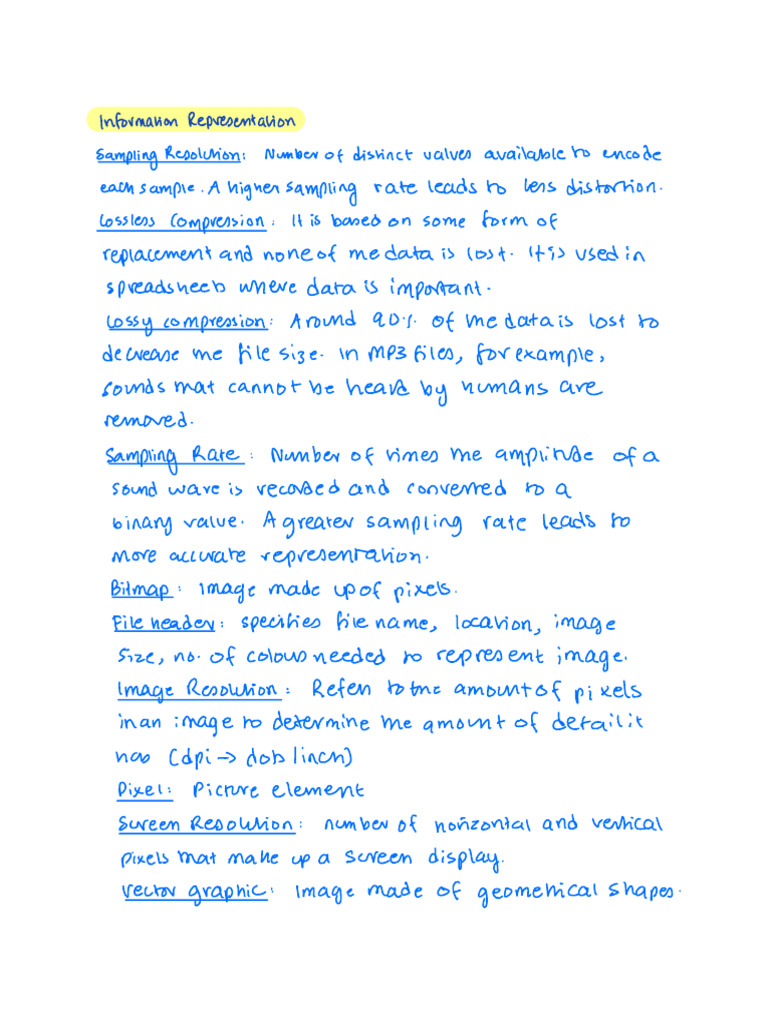 Information Representation
Sampling Resolution: Number of distinct values available to encode
each sample. A higher sampling rate leads to less distortion.
Lossless Compression: It is based on some form of
replacement and none of the data is lost. It is used in
spreadsheets where data is important.
Lossy compression: Around 90% of the data is lost to
decrease the file size. In MP3 files, for example,
sounds that cannot be heard by humans are
removed.
Sampling Rate: Number of times the amplitude of a
sound wave is recorded and converted to a
binary value. A greater sampling rate leads to
more accurate representation.
Bitmap: Image made up of pixels.
File header: specifies file name, location, image
size, no. of colours needed to represent image.
Image Resolution: Refers to the amount of pixels
in an image to determine the amount of detail it
has (dpi → dots/inch)
Pixel: Picture element
Screen Resolution: number of horizontal and vertical
pixels that make up a screen display.
Vector graphic: Image made of geometrical shapes.